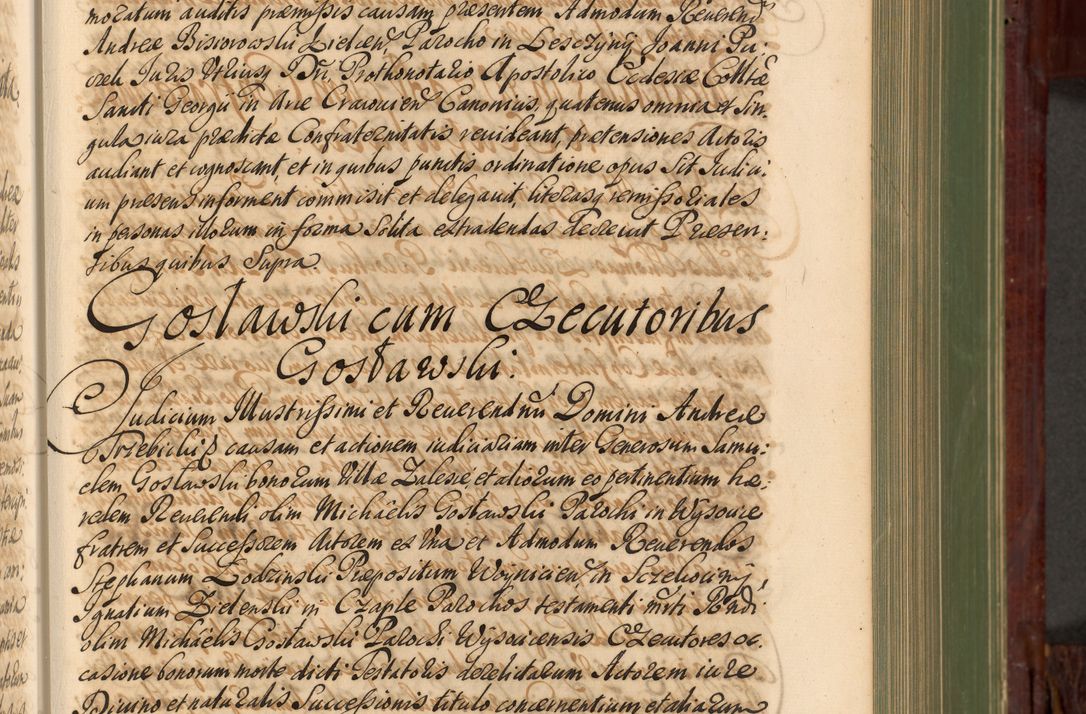 moratum auditis præmissis causam præsentem Admodum Reverend
Andreæ Bisiorowski Zielcen Parocho in Lesczyny Joanni Pu:
czeli Juris Utriusq Dri, Prothonotario Apostolico Ecclesiæ Colltæ
Sancti Georgii in Arce Cracovien Canonicis, quatenus omnia et Sin:
gula iura prædictæ Confraternitatis revideant, prætensiones Actoris
audiant et cognoscant, et in quibus punctis ordinatione opus Sit Judici:
um præsens informent commisit et delegavit, literasq remissoriales
in personas illorum in forma Solita extradendas decrevit Præsen:
tibus quibus Supra.
Gosławski cum Executoribus
Gosławski.
Judicium Illustrissimi et Reverendmi Domini Andreæ
Trzebicki causam et actionem iudiciariam inter Generosum Samu:
elem Gosławski bonorum Villæ Zalesie et aliorum eo pertinentium hæ:
redem Reverendi olim Michaelis Gosławski Parochi in Wysocice
fratrem et Successorem Actorem ex Una et Admodum Reverendos
Stephanum Lodzinski Præpositum Woynicien in Sczekociny,
Ignatium Zielenski in Czaple Parochos testamenti mrti Rndi
olim Michaelis Gosławski Parochi Wysocicensis Executores oc
casione bonorum morte dicti Testatoris derelictarum Actorem iure
Divino et naturalis Successionis titulo concernentium et aliarum